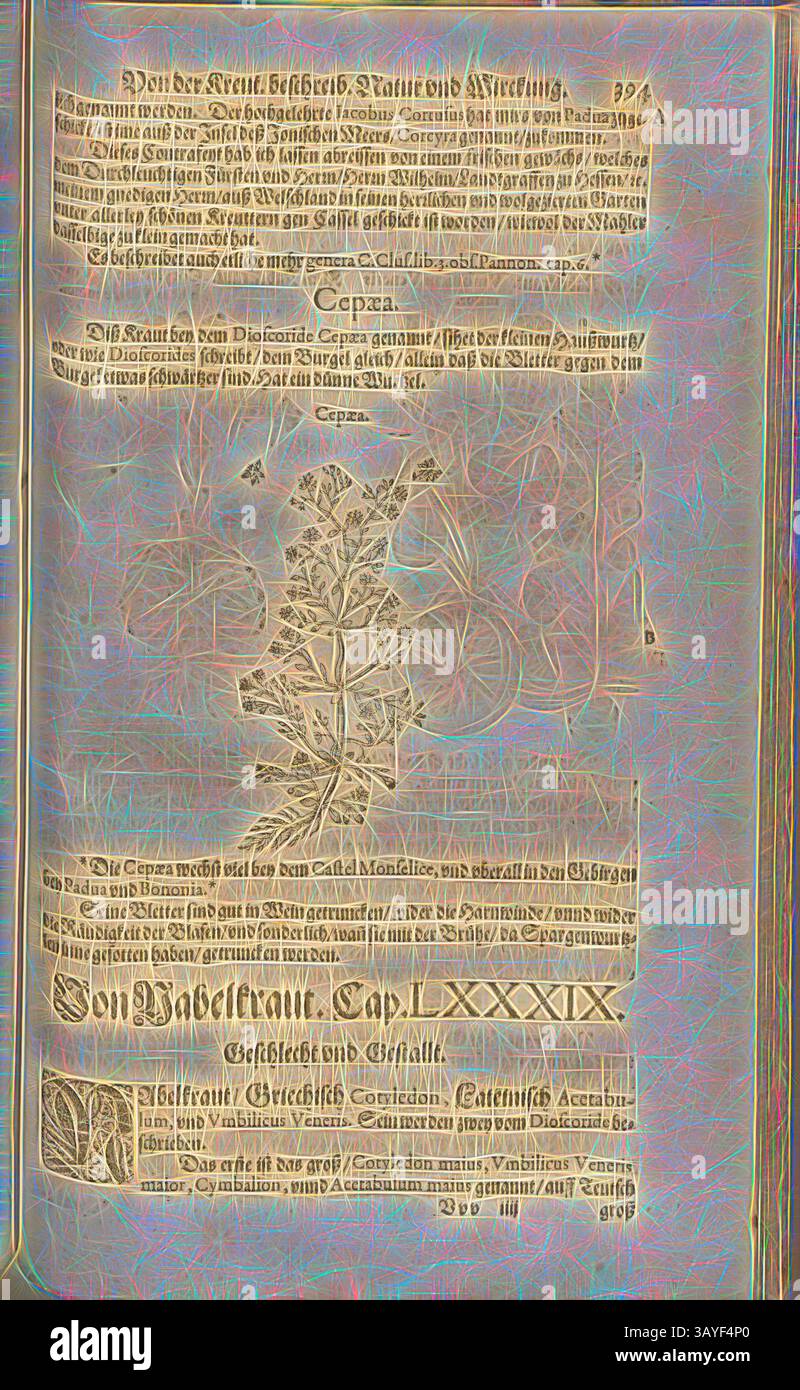 Von der Kreut. beschreib. Natur vnd Wirckung. 394
lich genannt werden. Der hochgelehrte Iacobus Cortusus hat mirs von Padua zuge- A
schickt / ist ime auß der Insel deß Jonischen Meers / Corcyra genannt / zukommen.
Dieses Contrafeyt hab ich lassen abreissen von einem frischen gewächs / welches
dem Durchleuchtigen Fürsten vnd Herrn / Herrn Wilhelm / Landtgraffen zu Hessen / ꝛc.
meinem gnedigen Herrn / auß Welschland in seinen herzlichen vnd wolgezierten Garten
vnter allerley schönen Kreuttern gen Cassel geschickt ist worden / wiewol der Mahler
dasselbige zu klein gemacht hat.
Es beschreibet auch etliche mehr genera C. Clus. lib. 3. obs. Pannon. cap. 6. *
Cepæa.
Diß Kraut bey dem Dioscoride Cepæa genannt / sihet der kleinen Haußwurtz /
oder wie Dioscorides schreibt / dem Burgel gleich / allein daß die Bletter gegen dem
Burgel etwas schwärtzer sind. Hat ein dünne Wurtzel.
Cepæa.
B
* Die Cepæa wechst viel bey dem Castel Monselice, vnd vberall in den Gebirgen
bey Padua vnd Bononia. *
Seine Bletter sind gut in Wein getruncken / wider die Harnwinde / vnnd wider
die Räudigkeit der Blasen / vnd sonderlich / wañ sie mit der Brühe / da Spargenwurtz-
len inne gesotten haben / getruncken werden.
Von Nabelkraut. Cap. LXXXIX.
Geschlecht vnd Gestallt.
NAbelkraut / Griechisch Cotyledon, Lateinisch Acetabu-
lum, vnd Vmbilicus Veneris. Sein werden zwey vom Dioscoride be-
schrieben.
Das erste ist das groß / Cotyledon maius, Vmbilicus Veneris
maior, Cymbalion, vnnd Acetabulum maius genannt / auff Teutsch
Vvv iiij groß
alamy
Image ID: 3AYF4P0
www.alamy.com